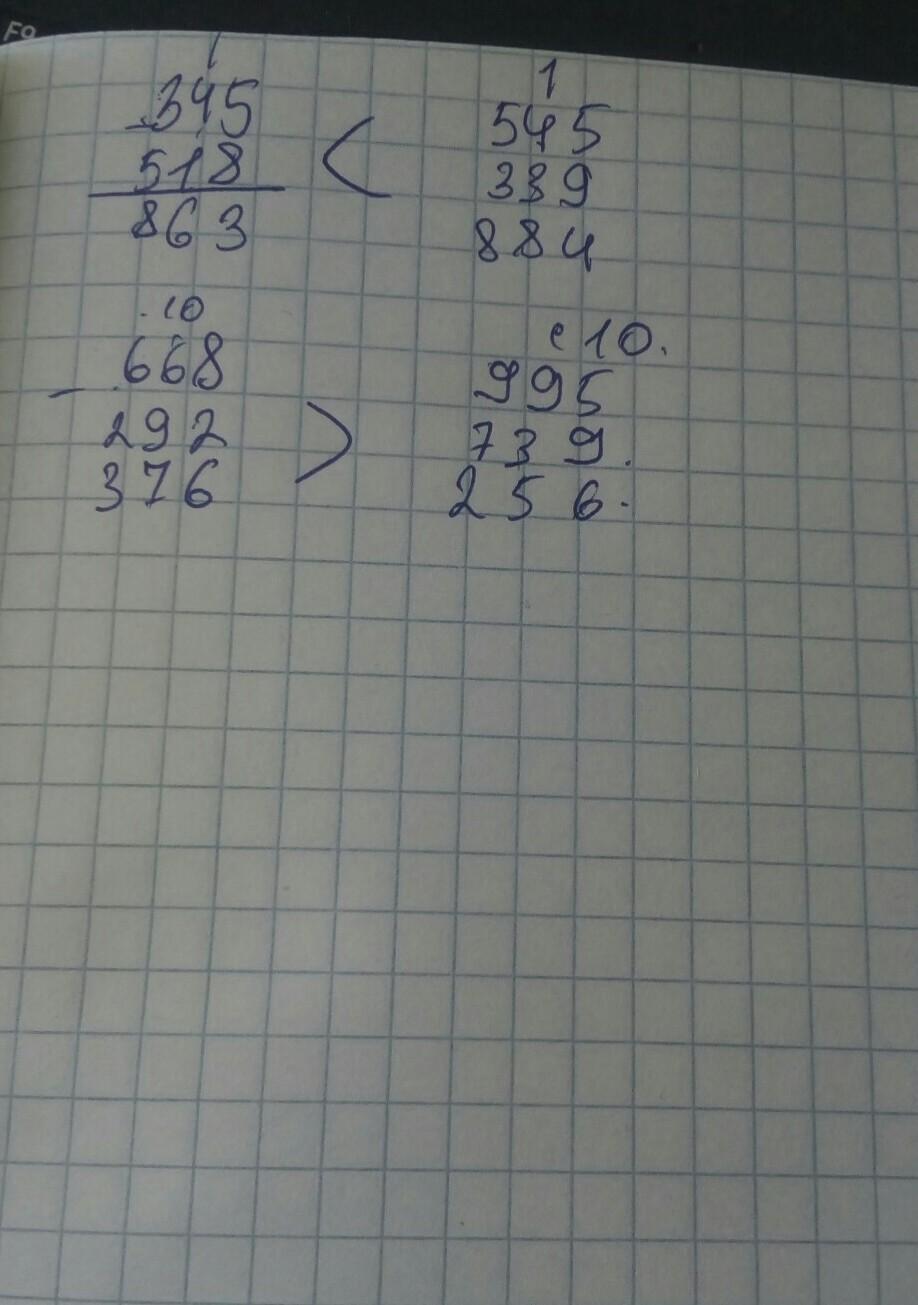 F9
1
345 < 545
518 339
863 884
.10
668 > 995
- 292 739.
376 256.